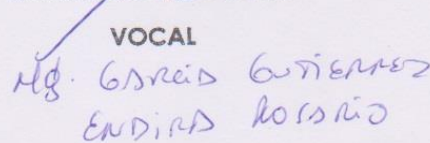 VOCAL
Mg. GARCIA GUTIERREZ
ENDIRA ROSARIO